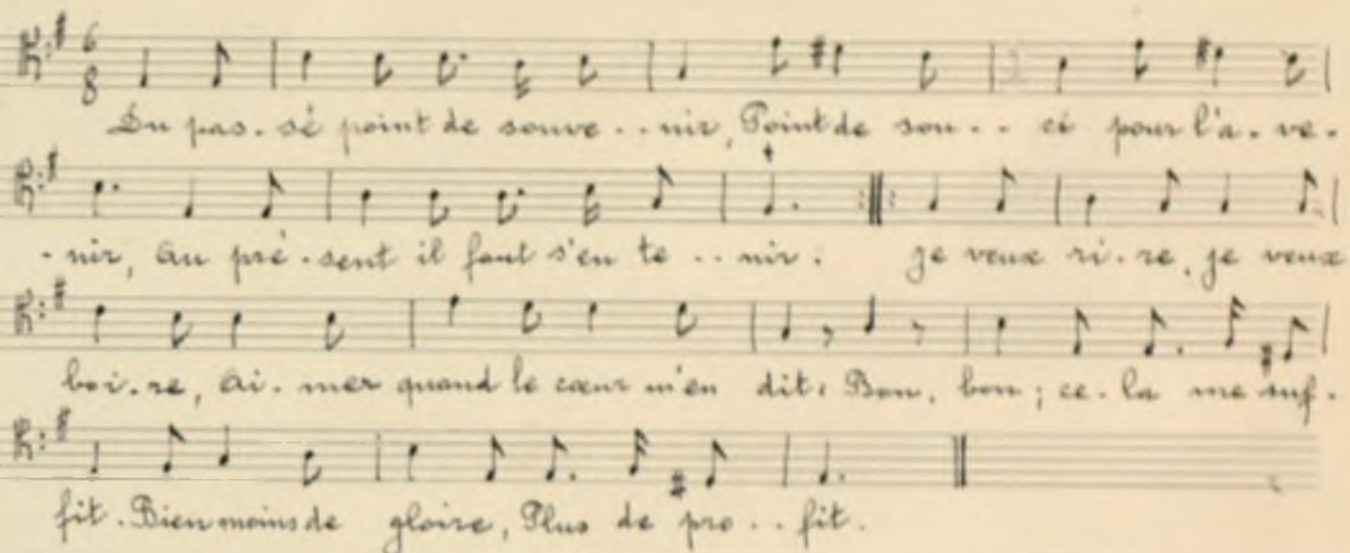 6
8
Du pas. sé point de souve . . nir, Point de sou . . ci pour l'a. ve.
. nir, au pré. sent il faut s'en te . . nir. je veux ri. re, je veux
boi. re, ai. mer quand le cœur m'en dit: Bon, bon; ce. la me suf.
fit. Bien moins de gloire, Plus de pro . . fit.